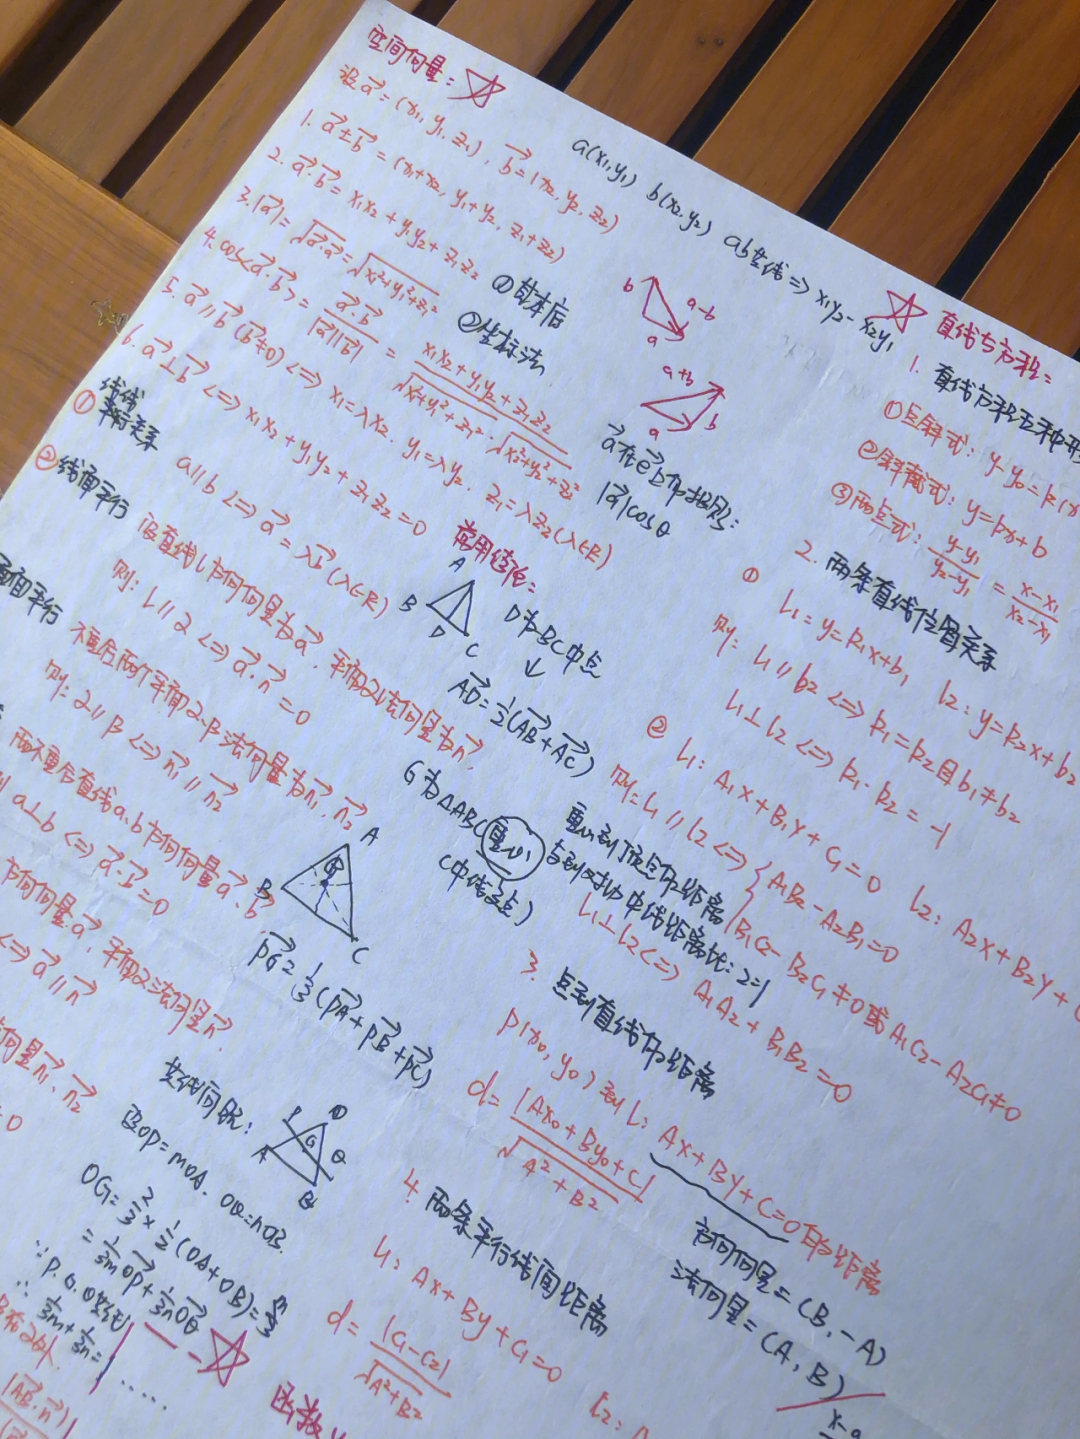 空间向量：
设a⃗=(x₁, y₁, z₁), b⃗=(x₂, y₂, z₂)
1. a⃗±b⃗=(x₁+x₂, y₁+y₂, z₁+z₂)
2. a⃗·b⃗=x₁x₂+y₁y₂+z₁z₂
3. |a⃗|=√(a⃗·a⃗)=√(x₁²+y₁²+z₁²)
4. cos<a⃗·b⃗>=a⃗·b⃗/|a⃗||b⃗|=(x₁x₂+y₁y₂+z₁z₂)/(√(x₁²+y₁²+z₁²)·√(x₂²+y₂²+z₂²))
5. a⃗∥b⃗(b⃗≠0)<=>x₁=λx₂, y₁=λy₂, z₁=λz₂(λ∈R)
6. a⃗⊥b⃗<=>x₁x₂+y₁y₂+z₁z₂=0
① 线线平行关系
a∥b<=>a⃗=λb⃗(λ∈R)
② 线面平行
设直线l方向向量为a⃗, 平面α法向量为n⃗,
则: l∥α<=>a⃗·n⃗=0
面面平行
不重合两个平面α、β法向量为n₁⃗, n₂⃗
则: α∥β<=>n₁⃗∥n₂⃗
两不重合直线a、b方向向量a⃗、b⃗
a⊥b<=>a⃗·b⃗=0
方向向量a⃗, 平面α法向量n⃗.
<=>a⃗∥n⃗
向量n₁⃗、n₂⃗
=0
a(x₁,y₁) b(x₂,y₂) ab共线=>x₁y₂-x₂y₁
①基本后
②坐标法
b a-b
a
a+b
a b
a⃗在e⃗上的投影:
|a⃗|cosθ
常用结论:
A
B D C
D为BC中点
↓
AD⃗=½(AB⃗+AC⃗)
G为△ABC重心
(中线交点)
重心到顶点的距离
与到对边中线距离比:2=1
A
B
C
PG⃗=⅓(PA⃗+PB⃗+PC⃗)
共线问题:
P O
G Q
A B
设OP=mOA, OQ=nOB.
OG=⅔×½(OA+OB)=
=1/3m OP⃗+1/3n OQ⃗
∵P.G.Q共线
∴1/3m+1/3n=
.....
|AB⃗·n⃗|
直线与方程:
1. 直线方程五种形
①点斜式: y-y₀=k(x
②斜截式: y=kx+b
③两点式: (y-y₁)/(y₂-y₁)=(x-x₁)/(x₂-x₁)
2. 两条直线位置关系
① l₁:y=k₁x+b₁ l₂:y=k₂x+b₂
则: l₁∥b₂<=>k₁=k₂且b₁≠b₂
l₁⊥l₂<=>k₁·k₂=-1
② l₁: A₁x+B₁y+C₁=0 l₂: A₂x+B₂y+C
则:l₁∥l₂<=>{A₁B₂-A₂B₁=0
B₁C₂-B₂C₁≠0或A₁C₂-A₂C₁≠0
l₁⊥l₂<=>A₁A₂+B₁B₂=0
3. 点到直线的距离
P(x₀,y₀)到l: Ax+By+C=0的距离
d=|Ax₀+By₀+C|/√(A²+B²)
方向向量=(B,-A)
法向量=(A,B)
4. 两条平行线间距离
l₁:Ax+By+C₁=0
l₂:
d=|C₁-C₂|/√(A²+B²)
函数